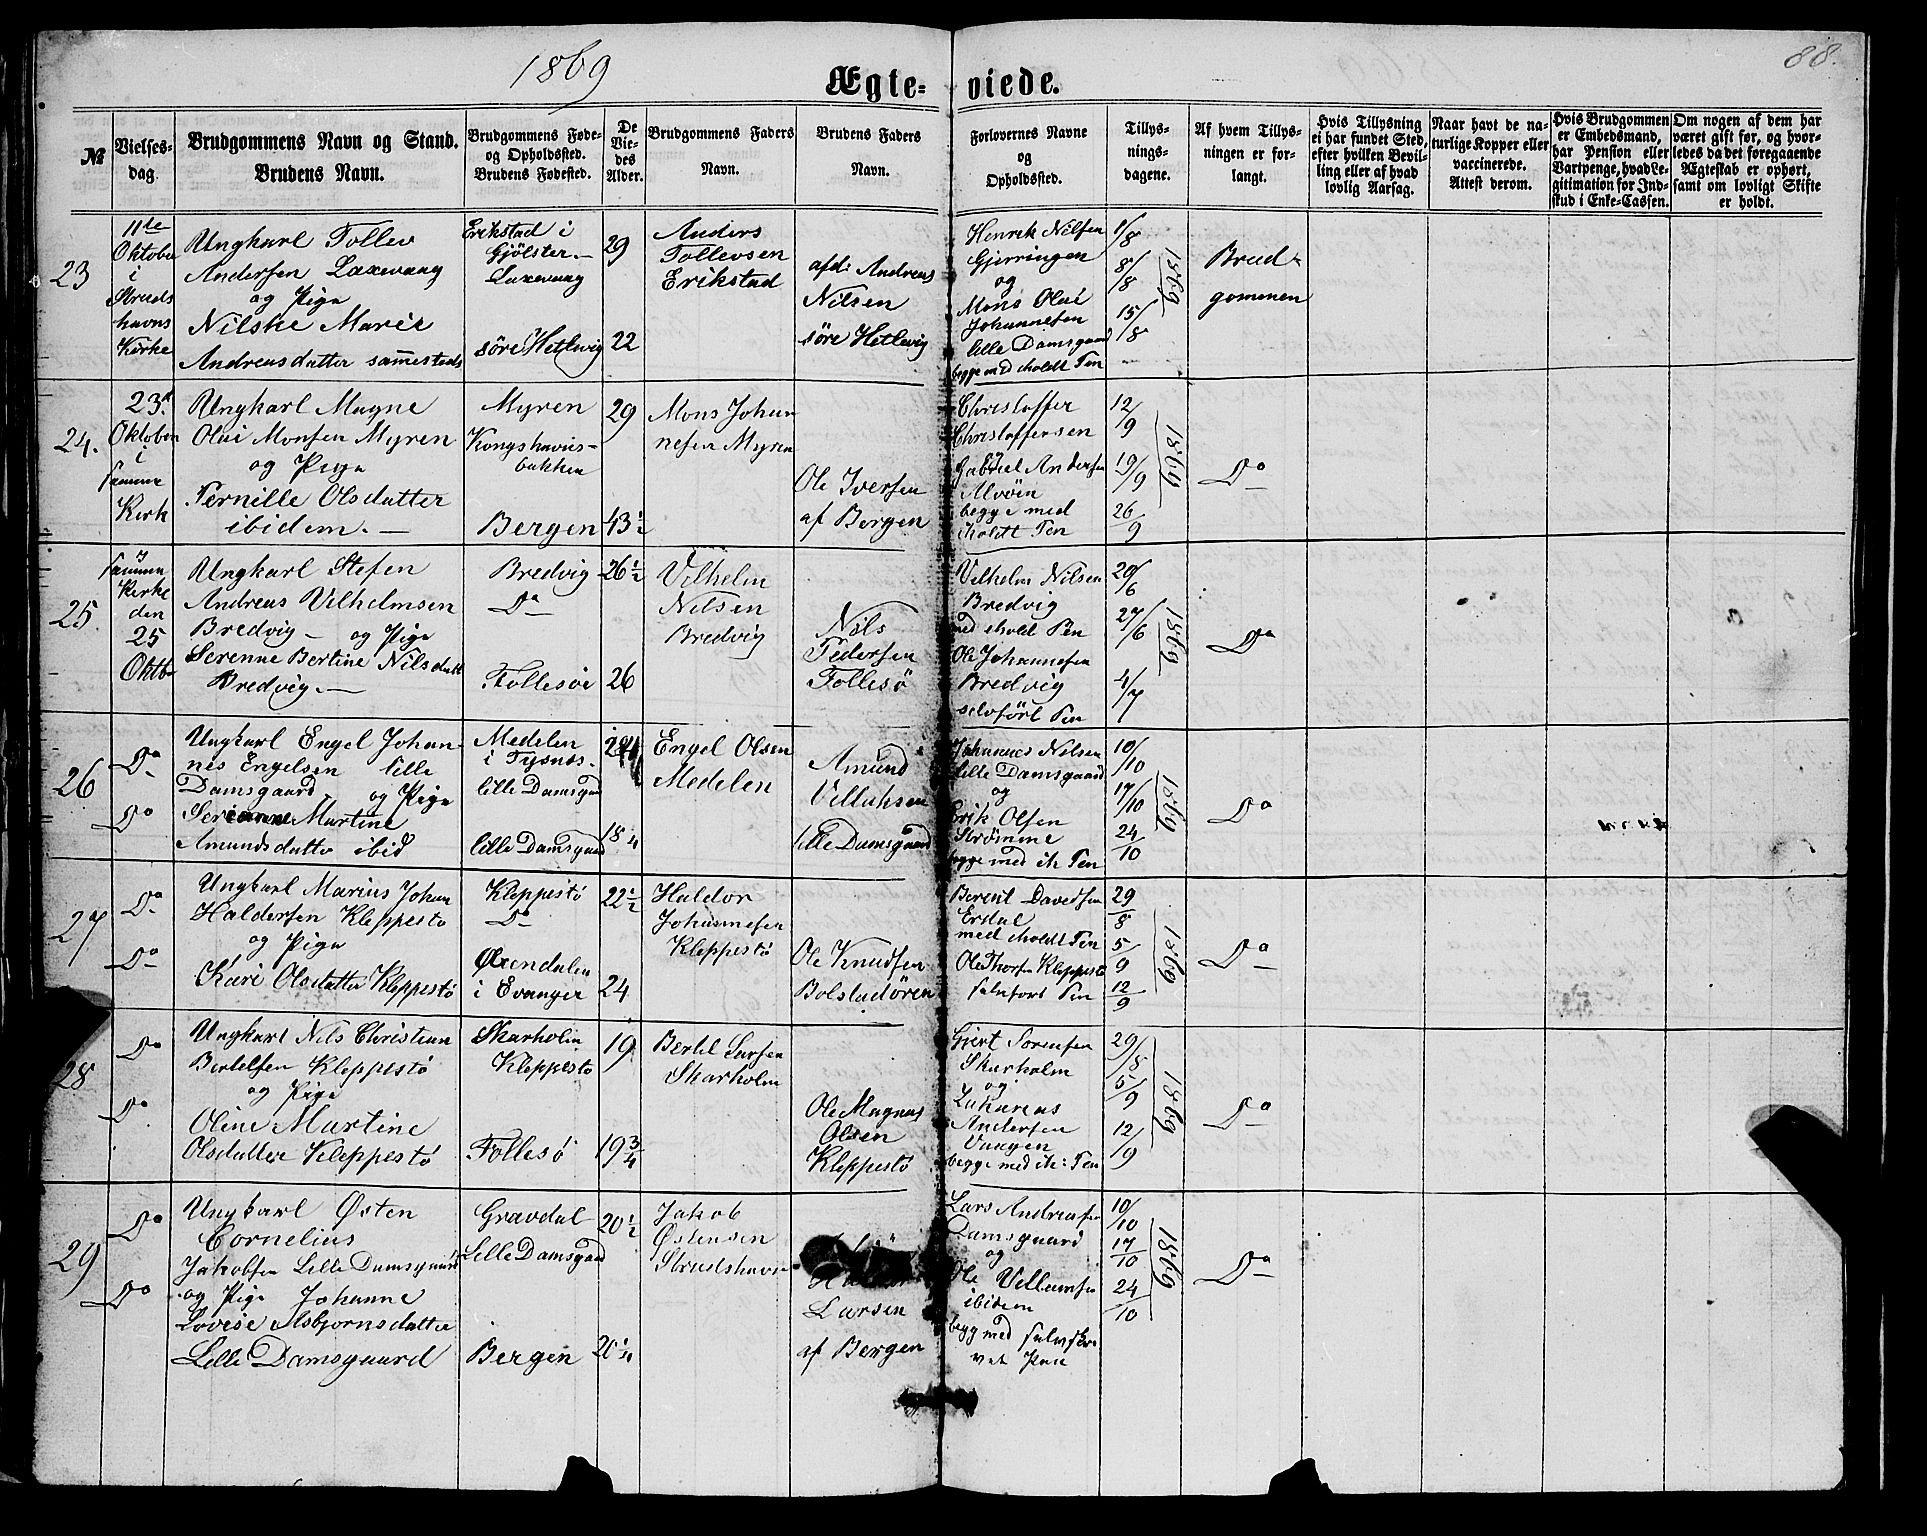 1869
88.
Ægte- viede.
№
Vielses-
dag.
Brudgommens Navn og Stand.
Brudens Navn.
Brudgommens Føde-
og Opholdssted.
Brudens Fødested.
De
Vie-
des
Alder.
Brudgommens Faders
Navn.
Brudens Faders
Navn.
Forlovernes Navne
og
Opholdssted.
Tillys-
nings-
dagene.
Af hvem Tillys-
ningen er for-
langt.
Hvis Tillysning
ei har fundet Sted,
efter hvilken Bevil-
ling eller af hvad
lovlig Aarsag.
Naar havt de na-
turlige Kopper eller
vaccinerede.
Attest derom.
Hvis Brudgommen
er Embedsmand,
har Pension eller
Vartpenge, hvad Le-
gitimation for Ind-
skud i Enke-Cassen.
Om nogen af dem har
været gift før, og hvor-
ledes da det foregaaende
Ægteskab er ophørt,
samt om lovligt Skifte
er holdt.
23
11te
Oktober
i
Struds
havns
Kirke
Ungkarl Tollev
Andersen Laxevaag
og Pige
Nilske Marie
Andreasdatter sammesteds
Erikstad i
Gjölster.—
Laxevaag
söre Hetlevig
29
22
Anders
Tollevsen
Erikstad
afd: Andreas
Nilsen
söre Hetlevig
Henrik Nilsen
Gjerringen
og
Mons Olai
Johannesen
lille Damsgaard
begge med iholdt Pen
1/8
8/8
15/8
1869
Brud-
gommen
24.
23d
Oktober
i
samme
Kirk
Ungkarl Magne
Olai Monsen Myren
og Pige
Pernille Olsdatter
ibidem.—
Myren
Kongshavns-
bakken
Bergen
29
43½
Mons Johan
nesen Myren
Ole Iversen
af Bergen
Christoffer
Christoffersen
Gabriel Andersen
Alvöin
begge med
iholdt Pen
12/9
19/9
26/9
1869
Do
25.
sammen
Kirke
den
25
Oktb
Ungkarl Stefen
Andreas Vilhelmsen
Bredvig— og Pige
Serenne Bertine Nilsdatt
Bredvig.—
Bredvig
Do
Follesöe
26½
26
Vilhelm
Nilsen
Bredvig
Nils
Pedersen
Follesö
Vilhelm Nilsen
Bredvig
med iholdt Pen
Ole Johannesen
Bredvig
selvfört Pen
20/6
27/6
4/7
1869
Do
26
Do
Do
Ungkarl Engel Johan-
nes Engelsen lille
Damsgaard og Pige
Serianne Martine
Amundsdatte ibid
Medelen
i Tysnes.
lille Damsgaa
lille Damsgaard
18¾
Engel Olsen
Medelen
Amund
Villaksen
lille Damsgaard
Johannes Nilsen
lille Damsgaard
og
Erik Olsen
Strömme
begge med ih Pen
10/10
17/10
24/10
1869
Do
27
Do
Do
Ungkarl Marius Johan
Haldersen Kleppestö
og Pige
Kari Olsdatter Kleppestö
Kleppestö
Do
Øxendalen
i Evanger
22½
24
Haldor
Johannesen
Kleppestö
Ole Knudsen
Bolstadören
Berent Davedsen
Erdal
med iholdt Pen
Ole Thorsen Kleppestö
selvfört Pen
29/8
5/9
12/9
1869
Do
28
Do
Do
Ungkarl Nils Christian
Bertelsen Kleppestö
og Pige
Oline Martine
Olsdatter Kleppestö
Skarholm
Kleppestö
Follesö
19
19¾
Bertel Larsen
Skarholm
Ole Magnus
Olsen
Kleppestö
Giert Sorensen
Skarholm
og
Zakarias
Andersen
Vaagen
begge med ih: Pen
29/8
5/9
12/9
1869
Do
29
Do
Do
Ungkarl Østen
Cornelius
Jakobsen Lille Damsgaard
og Pige Johanne
Lovise Asbjornsdatter
Lille Damsgaard
Gravdal
Lille Damsgaard
Bergen
20½
20¼
Jakob
Østensen
Strudshavn
Larsen
af Bergen
Lars Andreasen
Damsgaard
og
Ole Villumsen
ibidem
begg med selvskre
vet Pen
10/10
17/10
24/10
1869
Do